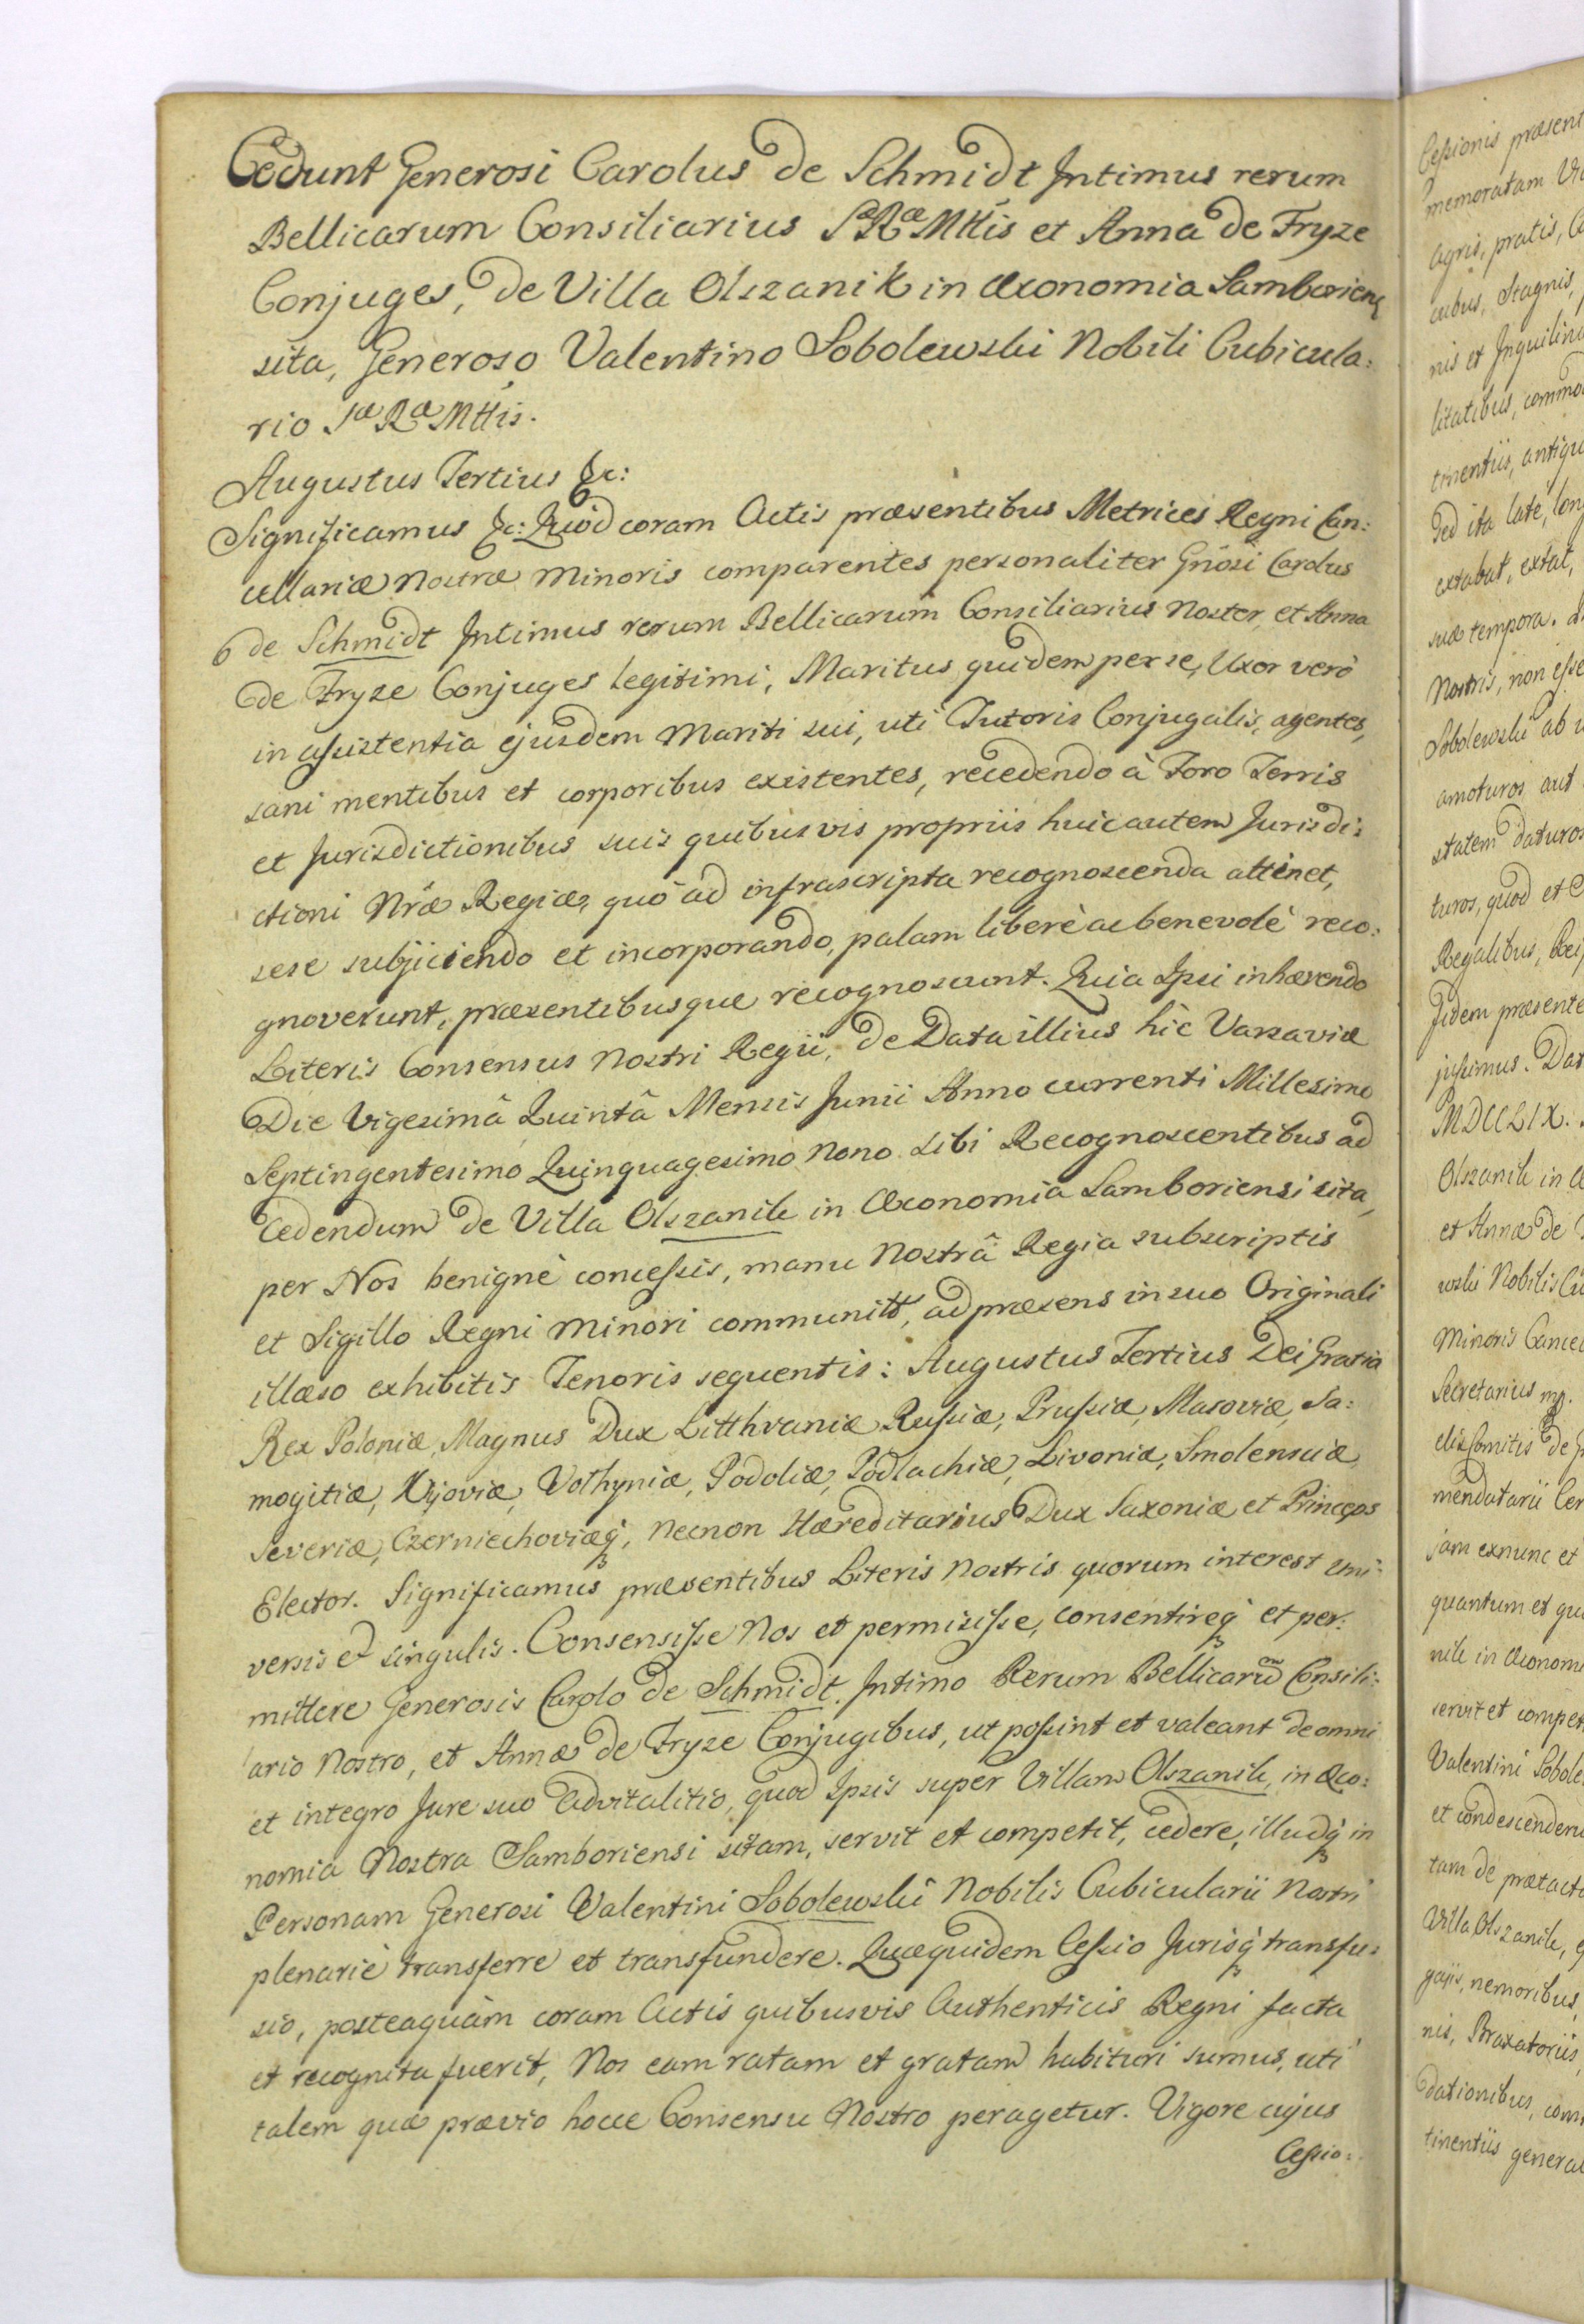 Cedunt Generosi Carolus de Schmidt Intimus rerum
Bellicarum Consiliarius Sæ Ræ Mttis et Anna de Fryze
Conjuges, de Villa Olszanik in Œconomia Samboriensi
sita, Generoso Valentino Sobolewski Nobili Cubicula:
rio Sæ Ræ Mttis.
Augustus Tertius &c:
Significamus &c: Quòd coram Actis præsentibus Metrices Regni Can:
cellariæ Nostræ Minoris comparentes personaliter Gnosi Carolus
de Schmidt Intimus rerum Bellicarum Consiliarius Noster, et Anna
de Fryze Conjuges legitimi, Maritus quidem per se, Uxor verò
in assistentia ejusdem Mariti sui, uti Tutoris Conjugalis, agentes,
sani mentibus et corporibus existentes, recedendo à Foro Terris
et Jurisdictionibus suis quibusvis propriis huic autem Jurisdi:
ctioni Nræ Regiæ, quò ad infrascripta recognoscenda attinet,
sese subjiciendo et incorporando, palam liberè ac benevolè reco:
gnoverunt, præsentibusque recognoscunt. Quia Ipsi inhærendo
Literis Consensus Nostri Regii, de Data illius hîc Varsaviæ
Die Vigesimâ Quintâ Mensis Junii Anno currenti Millesimo
Septingentesimo Quinquagesimo Nono sibi Recognoscentibus ad
Cedendum de Villa Olszanik in Œconomia Samboriensi sita,
per Nos benignè concessis, manu Nostrâ Regia subscriptis
et Sigillo Regni Minori communitt, ad præsens in suo Originali
illæso exhibitis Tenoris sequentis: Augustus Tertius Dei Gratia
Rex Poloniæ, Magnus Dux Litthvaniæ Russiæ, Prussiæ, Masoviæ, Sa:
mogitiæ, Kijoviæ, Volhyniæ, Podoliæ, Podlachiæ, Livoniæ, Smolensciæ
Severiæ, Czerniechoviæq, necnon Hæreditarius Dux Saxoniæ et Princeps
Elector. Significamus præsentibus Literis Nostris quorum interest uni:
versis et singulis. Consensisse Nos et permisisse, consentireq et per:
mittere Generosis Carolo de Schmidt Intimo Rerum Bellicarum Consili:
ario Nostro, et Annæ de Fryze Conjugibus, ut possint et valeant de omni
et integro Jure suo Advitalitio, quod Ipsis super Villam Olszanik, in Œco:
nomia Nostra Samboriensi sitam, servit et competit, cedere, illudq in
Personam Generosi Valentini Sobolewski Nobilis Cubicularii Nostri
plenariè transferre et transfundere. Quæquidem Cessio Jurisq transfu:
sio, posteaquàm coram Actis quibusvis Authenticis Regni facta
et recognita fuerit, Nos eam ratam et gratam habituri sumus, uti
talem quæ prævio hocce Consensu Nostro peragetur. Vigore cujus
Cessio:
Cessionis præsent
memoratam
agris, pratis,
Stagnis,
nis et Inquilin
litatibus, commo
tinentiis, antiqu
sed ita late, lon
extabat, extat,
suæ tempora.
Nostris, non esse
Sobolewski ab
amoturos aut
statem daturos
turos, quod et
Regalibus,
Fidem præsente
jussimus. Dat
MDCCLIX.
Olszanik in Œ
et Annæ de
wski Nobilis
Minoris Cancel
Secretarius mp.
Comitis de
mendatarii
jam exnunc et
quantum et qu
nik in Œconom
servit et compet
Valentini Sobole
et condescenden
tam de prætact
Villa Olszanik,
gajis, nemoribus,
nis, Braxatoriis,
dationibus, com
tinentiis general